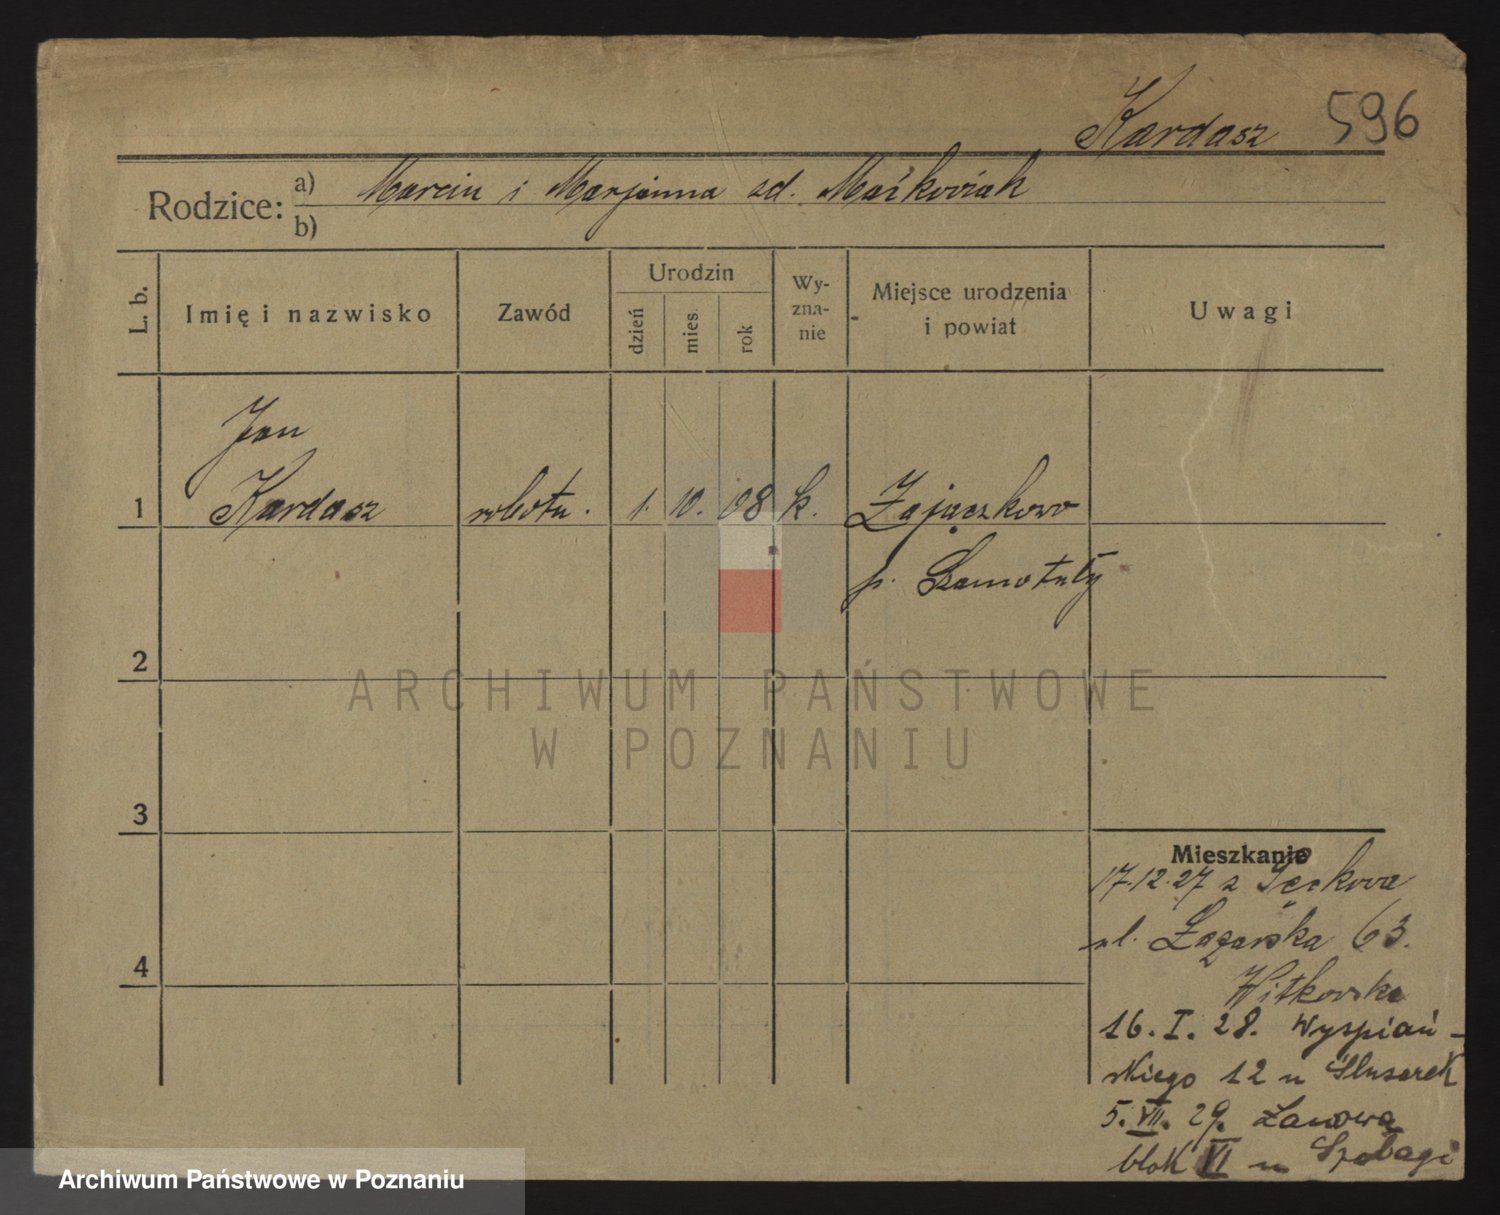 Kardasz 596
Rodzice: a) Marcin i Marjanna zd. Maćkowiak
b)
L. b. Imię i nazwisko Zawód Urodzin dzień mies. rok Wy-
zna-
nie Miejsce urodzenia
i powiat Uwagi
Jan
1 Kardasz robotn. 1. 10. 08 k. Zajączkowo
p. Szamotuły
2
ARCHIWUM PAŃSTWOWE
W POZNANIU
3
Mieszkanie
17.12.27 z
ul. Łazarska 63.
4
Witkowska
16. I. 28. Wyspiań-
skiego 12 u Ślusarek
5. VII. 29. Łanowa
blok VI u
Archiwum Państwowe w Poznaniu